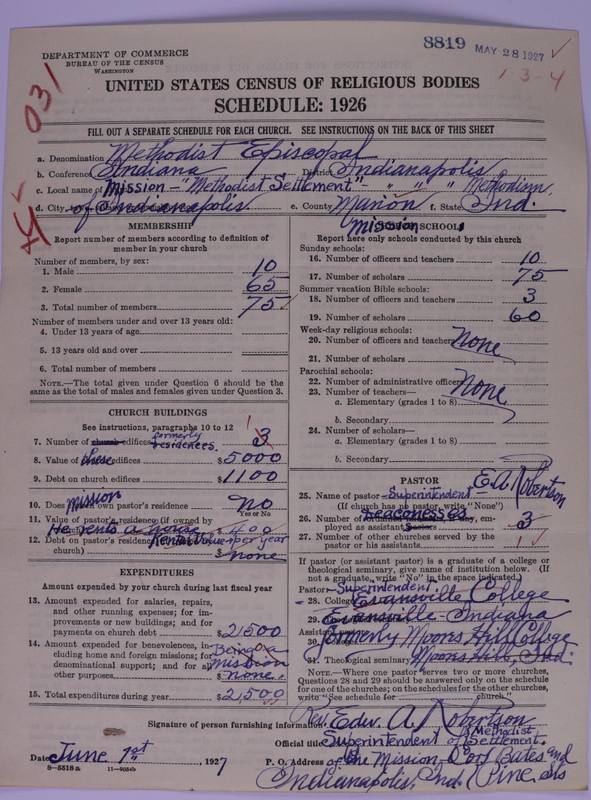 DEPARTMENT OF COMMERCE
BUREAU OF THE CENSUS
WASHINGTON
8819 MAY 28 1927
1-3-4
031
UNITED STATES CENSUS OF RELIGIOUS BODIES
SCHEDULE: 1926
FILL OUT A SEPARATE SCHEDULE FOR EACH CHURCH. SEE INSTRUCTIONS ON THE BACK OF THIS SHEET
a. Denomination Methodist Episcopal
b. Conference Indiana District Indianapolis
c. Local name of Mission - "Methodist Settlement" - " " " Methodism
d. City, of Indianapolis. e. County Marion f. State Ind.
MEMBERSHIP
Report number of members according to definition of member in your church
Number of members, by sex:
1. Male 10
2. Female 65
3. Total number of members 75
Number of members under and over 13 years old:
4. Under 13 years of age
5. 13 years old and over
6. Total number of members
NOTE.—The total given under Question 6 should be the same as the total of males and females given under Question 3.
CHURCH BUILDINGS
See instructions, paragraphs 10 to 12
7. Number of church edifices formerly residences. 3
8. Value of these edifices $5000
9. Debt on church edifices $1100
10. Does Mission own pastor's residence? No
Yes or No
11. Value of pastor's residence (if owned by
He rents a house $400
12. Debt on pastor's residence Rental Value per year
church) $none
EXPENDITURES
Amount expended by your church during last fiscal year
13. Amount expended for salaries, repairs, and other running expenses; for improvements or new buildings; and for payments on church debt $2,500
14. Amount expended for benevolences, including home and foreign missions; for denominational support; and for all other purposes Being a mission $none
15. Total expenditures during year $2,500
Mission SCHOOLS
Report here only schools conducted by this church
Sunday schools:
16. Number of officers and teachers 10
17. Number of scholars 75
Summer vacation Bible schools:
18. Number of officers and teachers 3
19. Number of scholars 60
Week-day religious schools:
20. Number of officers and teachers None
21. Number of scholars
Parochial schools:
22. Number of administrative officers None
23. Number of teachers—
a. Elementary (grades 1 to 8)
b. Secondary
24. Number of scholars—
a. Elementary (grades 1 to 8)
b. Secondary
PASTOR
25. Name of pastor - Superintendent - E.A. Robertson
(If church has no pastor, write "None")
26. Number of Deaconesses employed as assistant pastors 3
27. Number of other churches served by the pastor or his assistant 1
If pastor (or assistant pastor) is a graduate of a college or theological seminary, give name of institution below. (If not a graduate, write "No" in the space indicated.)
Pastor - Superintendent.
28. College Evansville College
29. Evansville - Indiana
Assistant pastor
30. formerly Moores Hill College
31. Theological seminary Moores Hill, Ind.
NOTE.—Where one pastor serves two or more churches, Questions 28 and 29 should be answered only on the schedule for one of the churches; on the schedules for the other churches, write "See schedule for church."
Signature of person furnishing information Rev. Edw. A. Robertson
Official title Superintendent of Methodist Settlement.
Date June 1st, 1927 P. O. Address of the Mission - Cor. Bates and
8-5518a 11-9054b Indianapolis, Ind. (Pine Sts